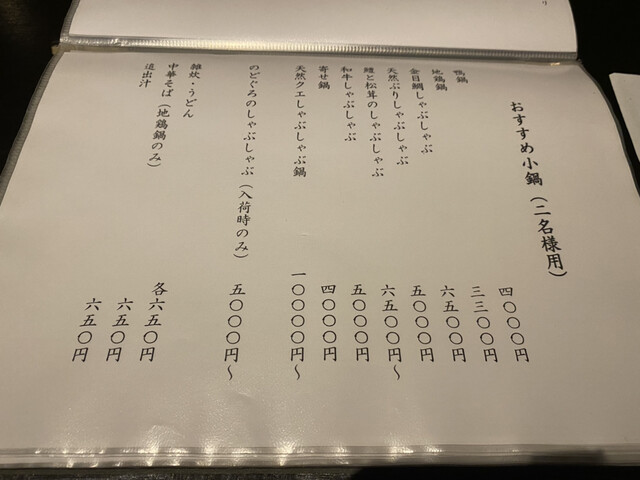 おすすめ小鍋（二名様用）
鴨鍋 四〇〇〇円
地鶏鍋 三三〇〇円
金目鯛しゃぶしゃぶ 六五〇〇円
天然ぶりしゃぶしゃぶ 五〇〇〇円
鱧と松茸のしゃぶしゃぶ 六五〇〇円～
和牛しゃぶしゃぶ 五〇〇〇円
寄せ鍋 四〇〇〇円
天然クエしゃぶしゃぶ鍋 一〇〇〇〇円～
のどぐろのしゃぶしゃぶ（入荷時のみ） 五〇〇〇円～
雑炊・うどん 各六五〇円
中華そば（地鶏鍋のみ） 六五〇円
追出汁 六五〇円